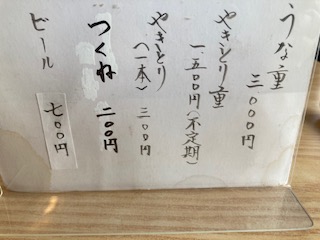 うな重
三〇〇〇円
やきとり重
一、五〇〇円(不定期)
やきとり
(一本)三〇〇円
つくね 二〇〇円
ビール 七〇〇円